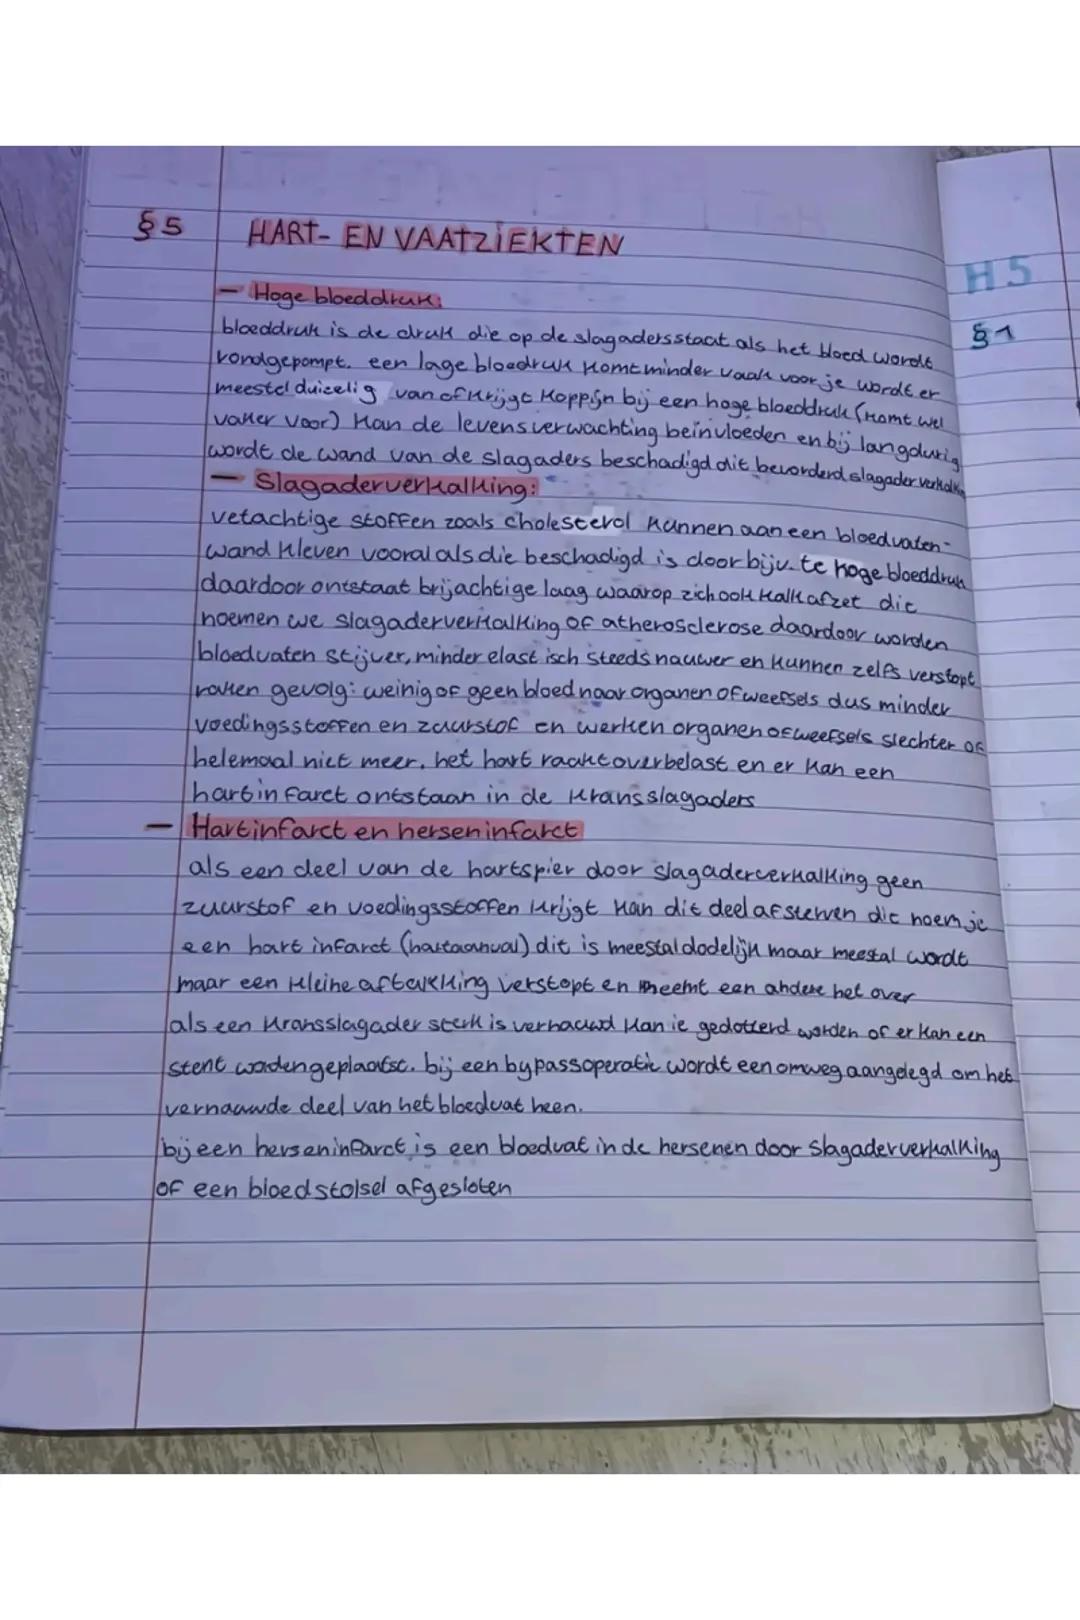 §5 HART- EN VAATZIEKTEN
- Hoge bloeddruk:
bloeddruk is de druk die op de slagadersstaat als het bloed wordt
rondgepompt. een lage bloedruk komt minder vaak voor je wordt er
meestel duizelig van of krijgt koppijn bij een hoge bloeddruk (komt wel
vaker voor) kan de levensverwachting beïnvloeden en bij langdurig
wordt de wand van de slagaders beschadigd dit bevorderd slagaderverkalking
- Slagaderverkalking:
vetachtige stoffen zoals cholesterol kunnen aan een bloedvaten-
wand kleven vooral als die beschadigd is door bijv. te hoge bloeddruk
daardoor ontstaat brijachtige laag waarop zich ook kalk afzet dit
noemen we slagaderverkalking of atherosclerose daardoor worden
bloedvaten stijver, minder elastisch steeds nauwer en kunnen zelfs verstopt
raken gevolg: weinig of geen bloed naar organen of weefsels dus minder
voedingsstoffen en zuurstof en werken organen of weefsels slechter of
helemaal niet meer. het hart raakt overbelast en er kan een
hartinfarct ontstaan in de kransslagaders
- Hartinfarct en herseninfarct
als een deel van de hartspier door slagaderverkalking geen
zuurstof en voedingsstoffen krijgt kan dit deel afsterven dit noem je
een hart infarct (hartaanval) dit is meestal dodelijk maar meestal wordt
maar een kleine aftakking verstopt en neemt een andere het over
als een kransslagader sterk is vernauwd kan ie gedotterd worden of er kan een
stent worden geplaatst. bij een bypassoperatie wordt een omweg aangelegd om het
vernauwde deel van het bloedvat heen.
bij een herseninfarct is een bloedvat in de hersenen door slagaderverkalking
of een bloedstolsel afgesloten
H5
§1